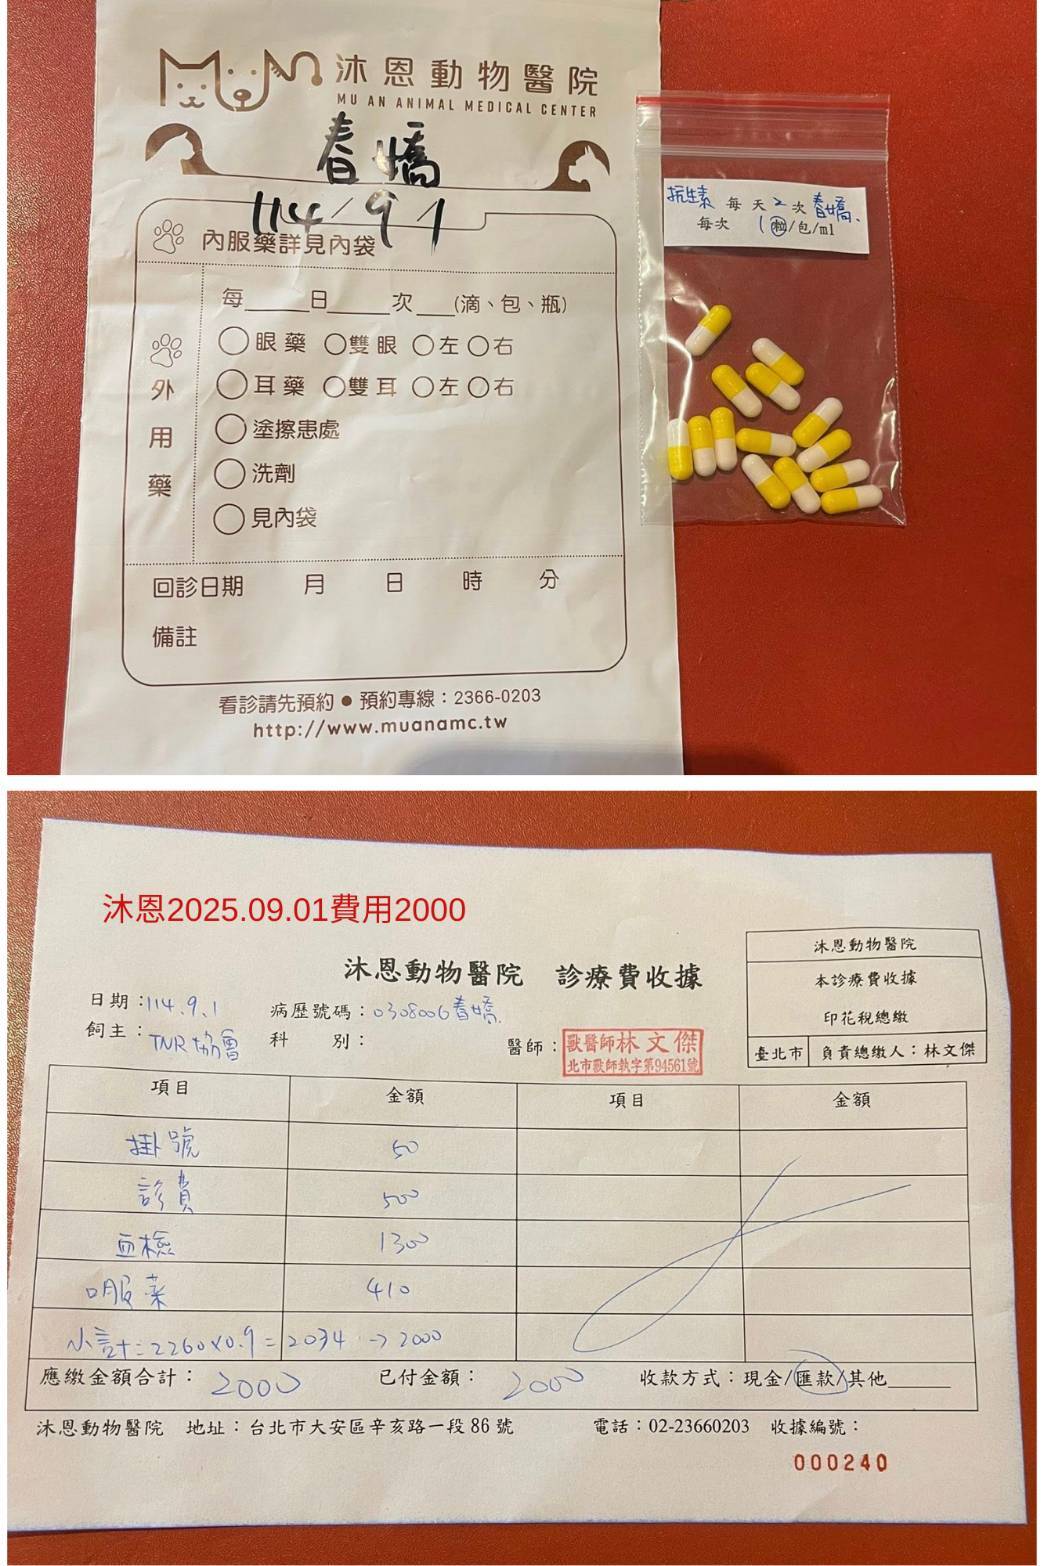 沐恩動物醫院
MU AN ANIMAL MEDICAL CENTER
春嬌
114/9/1
內服藥詳見內袋
每____日____次___(滴、包、瓶)
外用藥
眼藥 雙眼 左 右
耳藥 雙耳 左 右
塗擦患處
洗劑
見內袋
回診日期 月 日 時 分
備註
看診請先預約●預約專線：2366-0203
http://www.muanamc.tw
抗生素 每天2次 春嬌.
每次 1粒/包/ml
沐恩2025.09.01費用2000
沐恩動物醫院 診療費收據
沐恩動物醫院
本診療費收據
印花稅總繳
臺北市 負責總繳人：林文傑
日期：114.9.1 病歷號碼：0308006春嬌.
飼主：TNR協會 科 別： 醫師：
獸醫師林文傑
北市獸師執字第94561號
項目 金額 項目 金額
掛號 50
診費 500
血檢 1300
口服藥 410
小計=2260×0.9=2034→2000
應繳金額合計：2000 已付金額：2000 收款方式：現金/匯款/其他______
沐恩動物醫院 地址：台北市大安區辛亥路一段86號 電話：02-23660203 收據編號：
000240